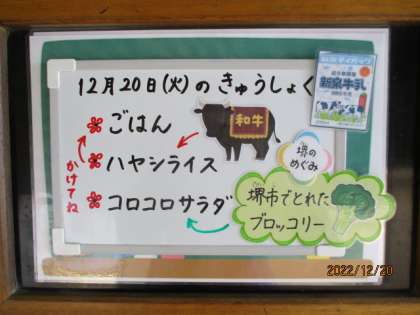 12月20日(火)の きゅうしょく
ごはん
かけてね
ハヤシライス
和牛
コロコロサラダ
堺の
めぐみ
堺市でとれた
ブロッコリー
牛乳
2022/12/20